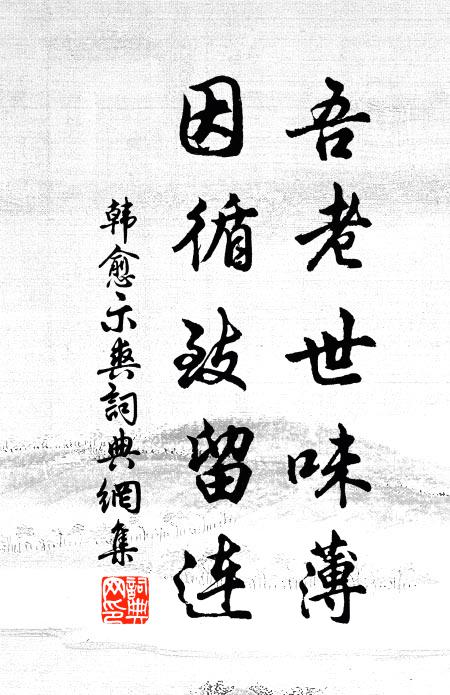 吾老世味薄
因循致留连
韩愈示爽詞典網集
詞典网印